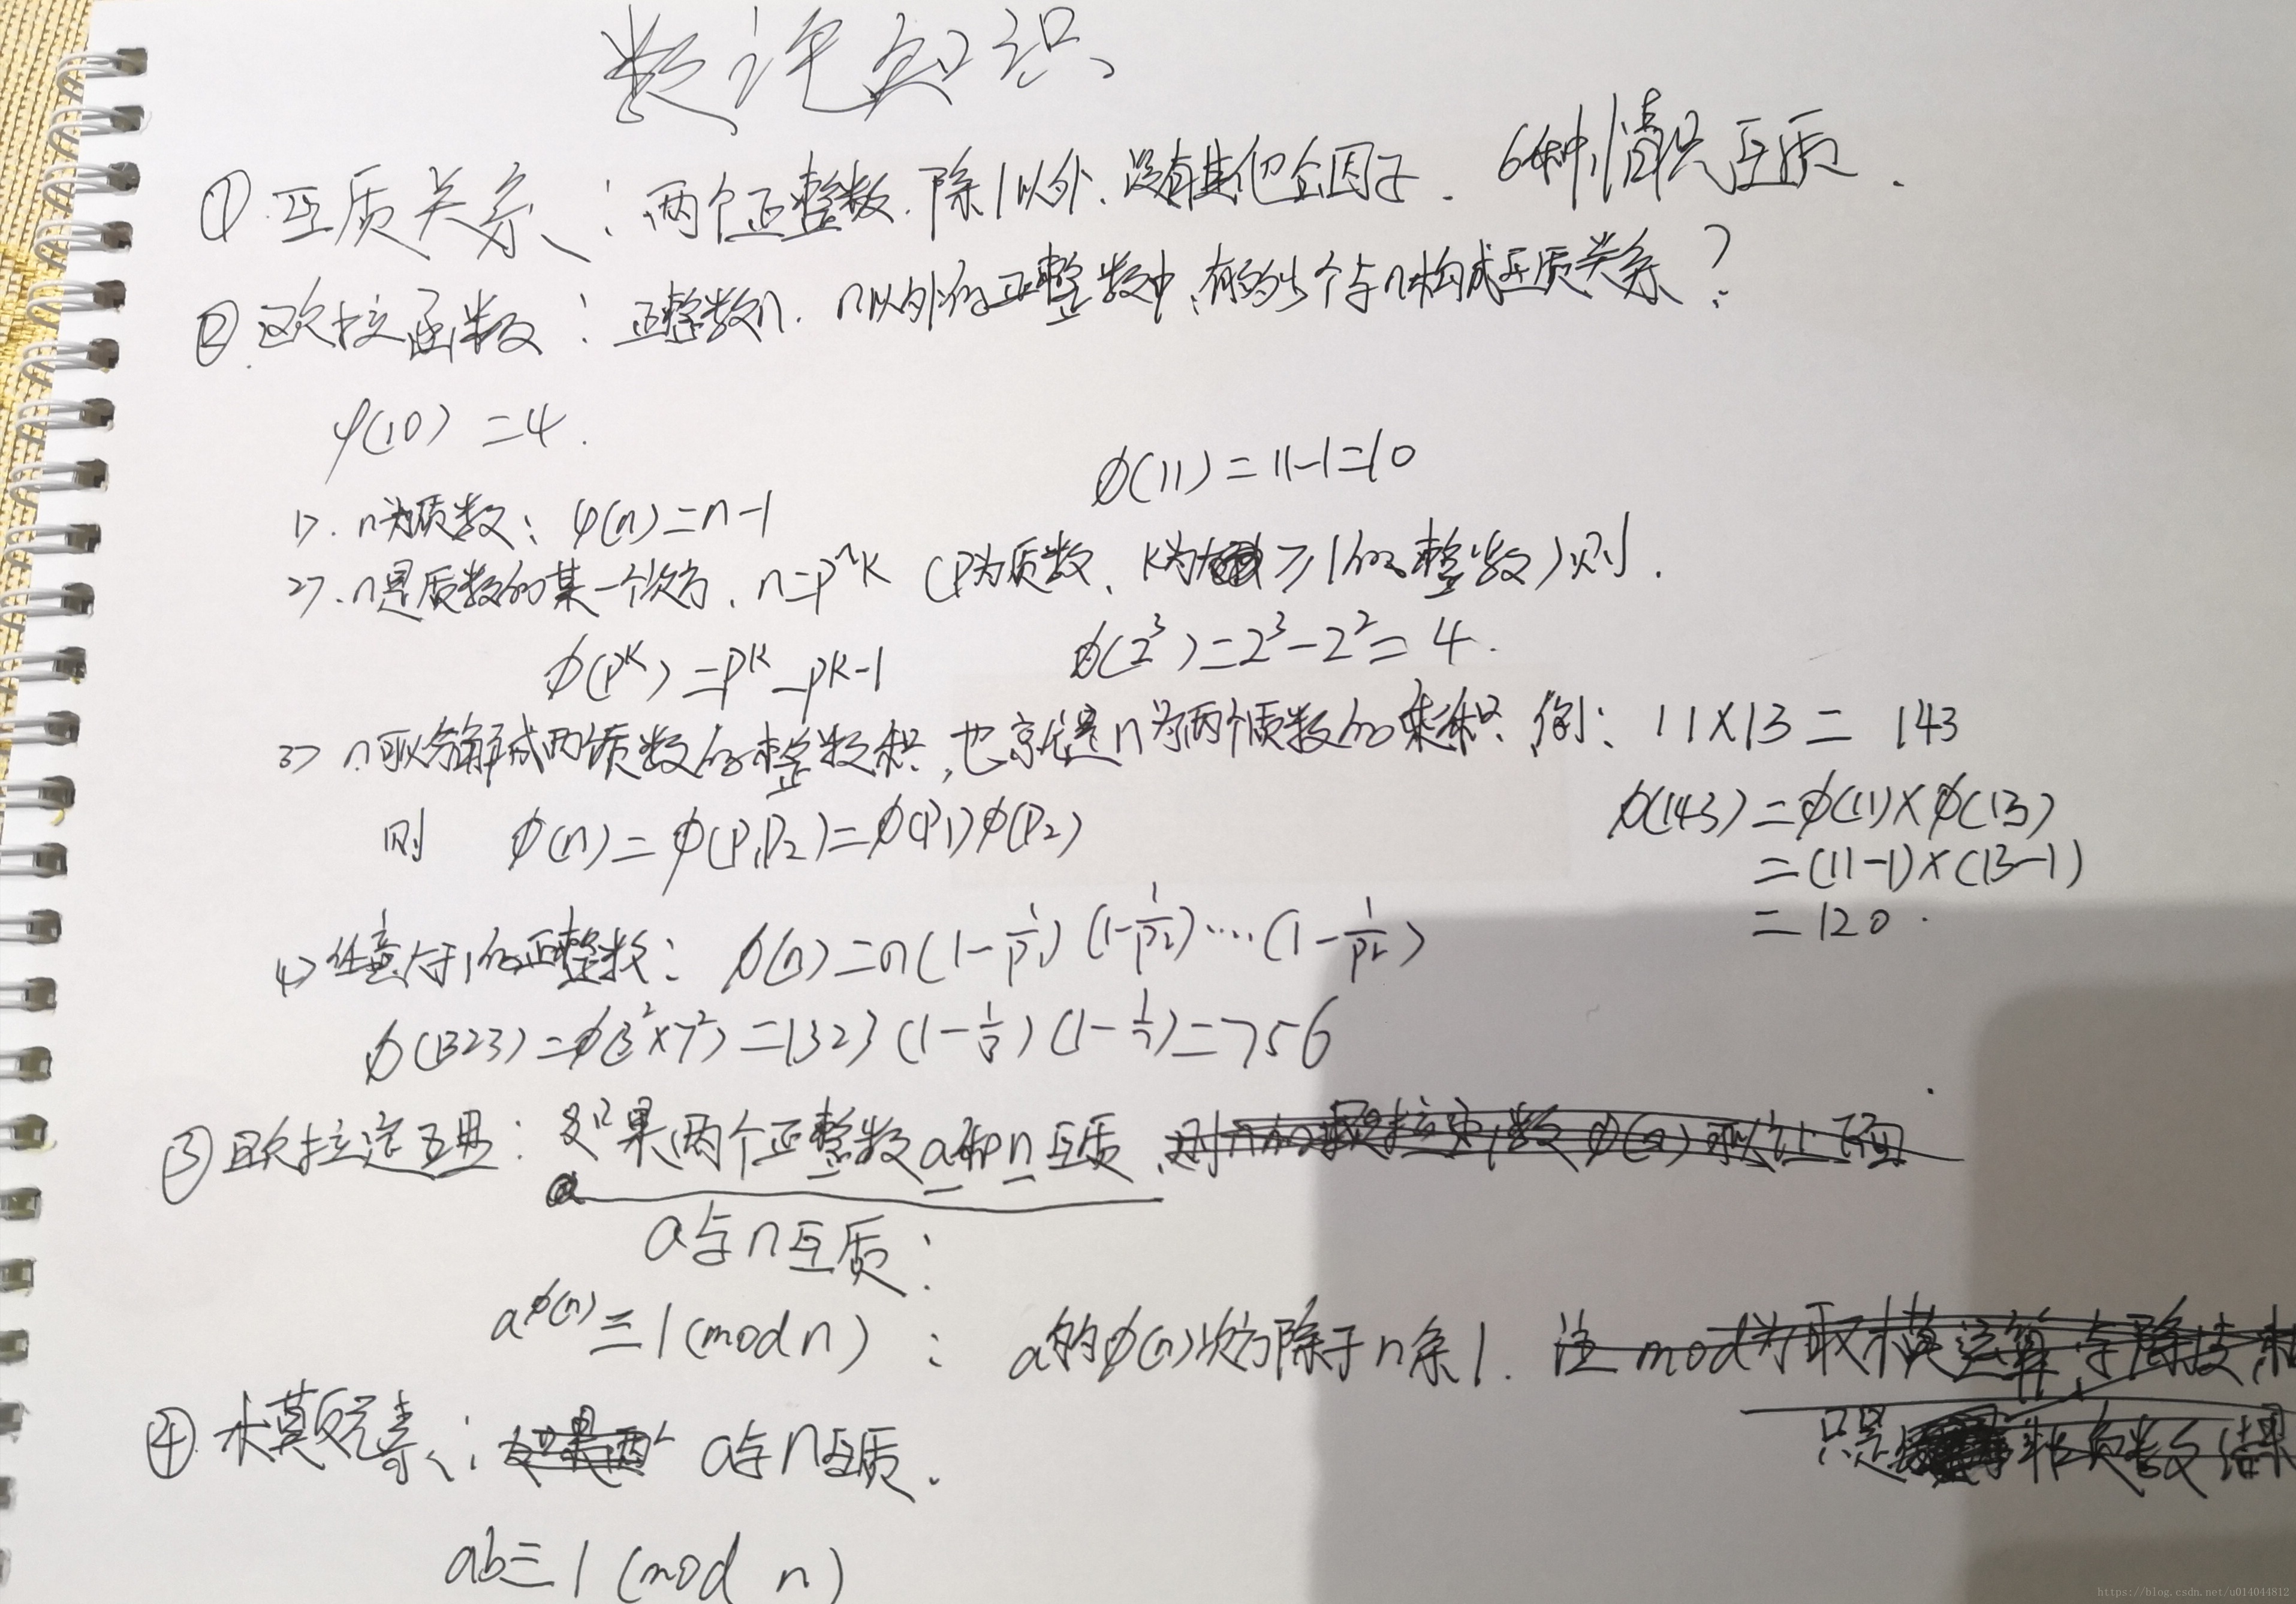 数论知识
① 互质关系：两个正整数,除1以外,没有其他公因子. 6种情况互质.
② 欧拉函数：正整数n. n以外的正整数中,有多少个与n构成互质关系?
φ(10) = 4.
1>. n为质数: φ(n)=n-1 ϕ(11) = 11-1=10
2>. n是质数的某一个次方. n=p^k (P为质数, K为 ≥1的整数)则.
ϕ(p^k) = p^k - p^k-1 ϕ(2³)=2³-2²= 4.
3> n可以分解成两个质数的整数积,也就是n为两个质数的乘积. 例: 11×13 = 143
则 ϕ(n) = ϕ(P₁P₂)=ϕ(P₁)ϕ(P₂) ϕ(143) = ϕ(11)×ϕ(13)
= (11-1)×(13-1)
= 120.
4> 任意大于1的正整数: ϕ(n)=n(1-1/p₁)(1-1/p₂)....(1-1/pr)
ϕ(1323) = ϕ(3²×7²) =1323 (1-1/3) (1-1/7)=756
③ 欧拉定理: 如果两个正整数a和n互质,则n的欧拉函数ϕ(n)可以让下面
a与n互质:
a^ϕ(n) ≡ 1 (mod n) : a的ϕ(n)次方除于n余1. 注 mod为取模运算,与除
只是 负数结果
④ 求模反元素: 如果两个 a与n互质.
ab≡1 (mod n)
https://blog.csdn.net/u014044812